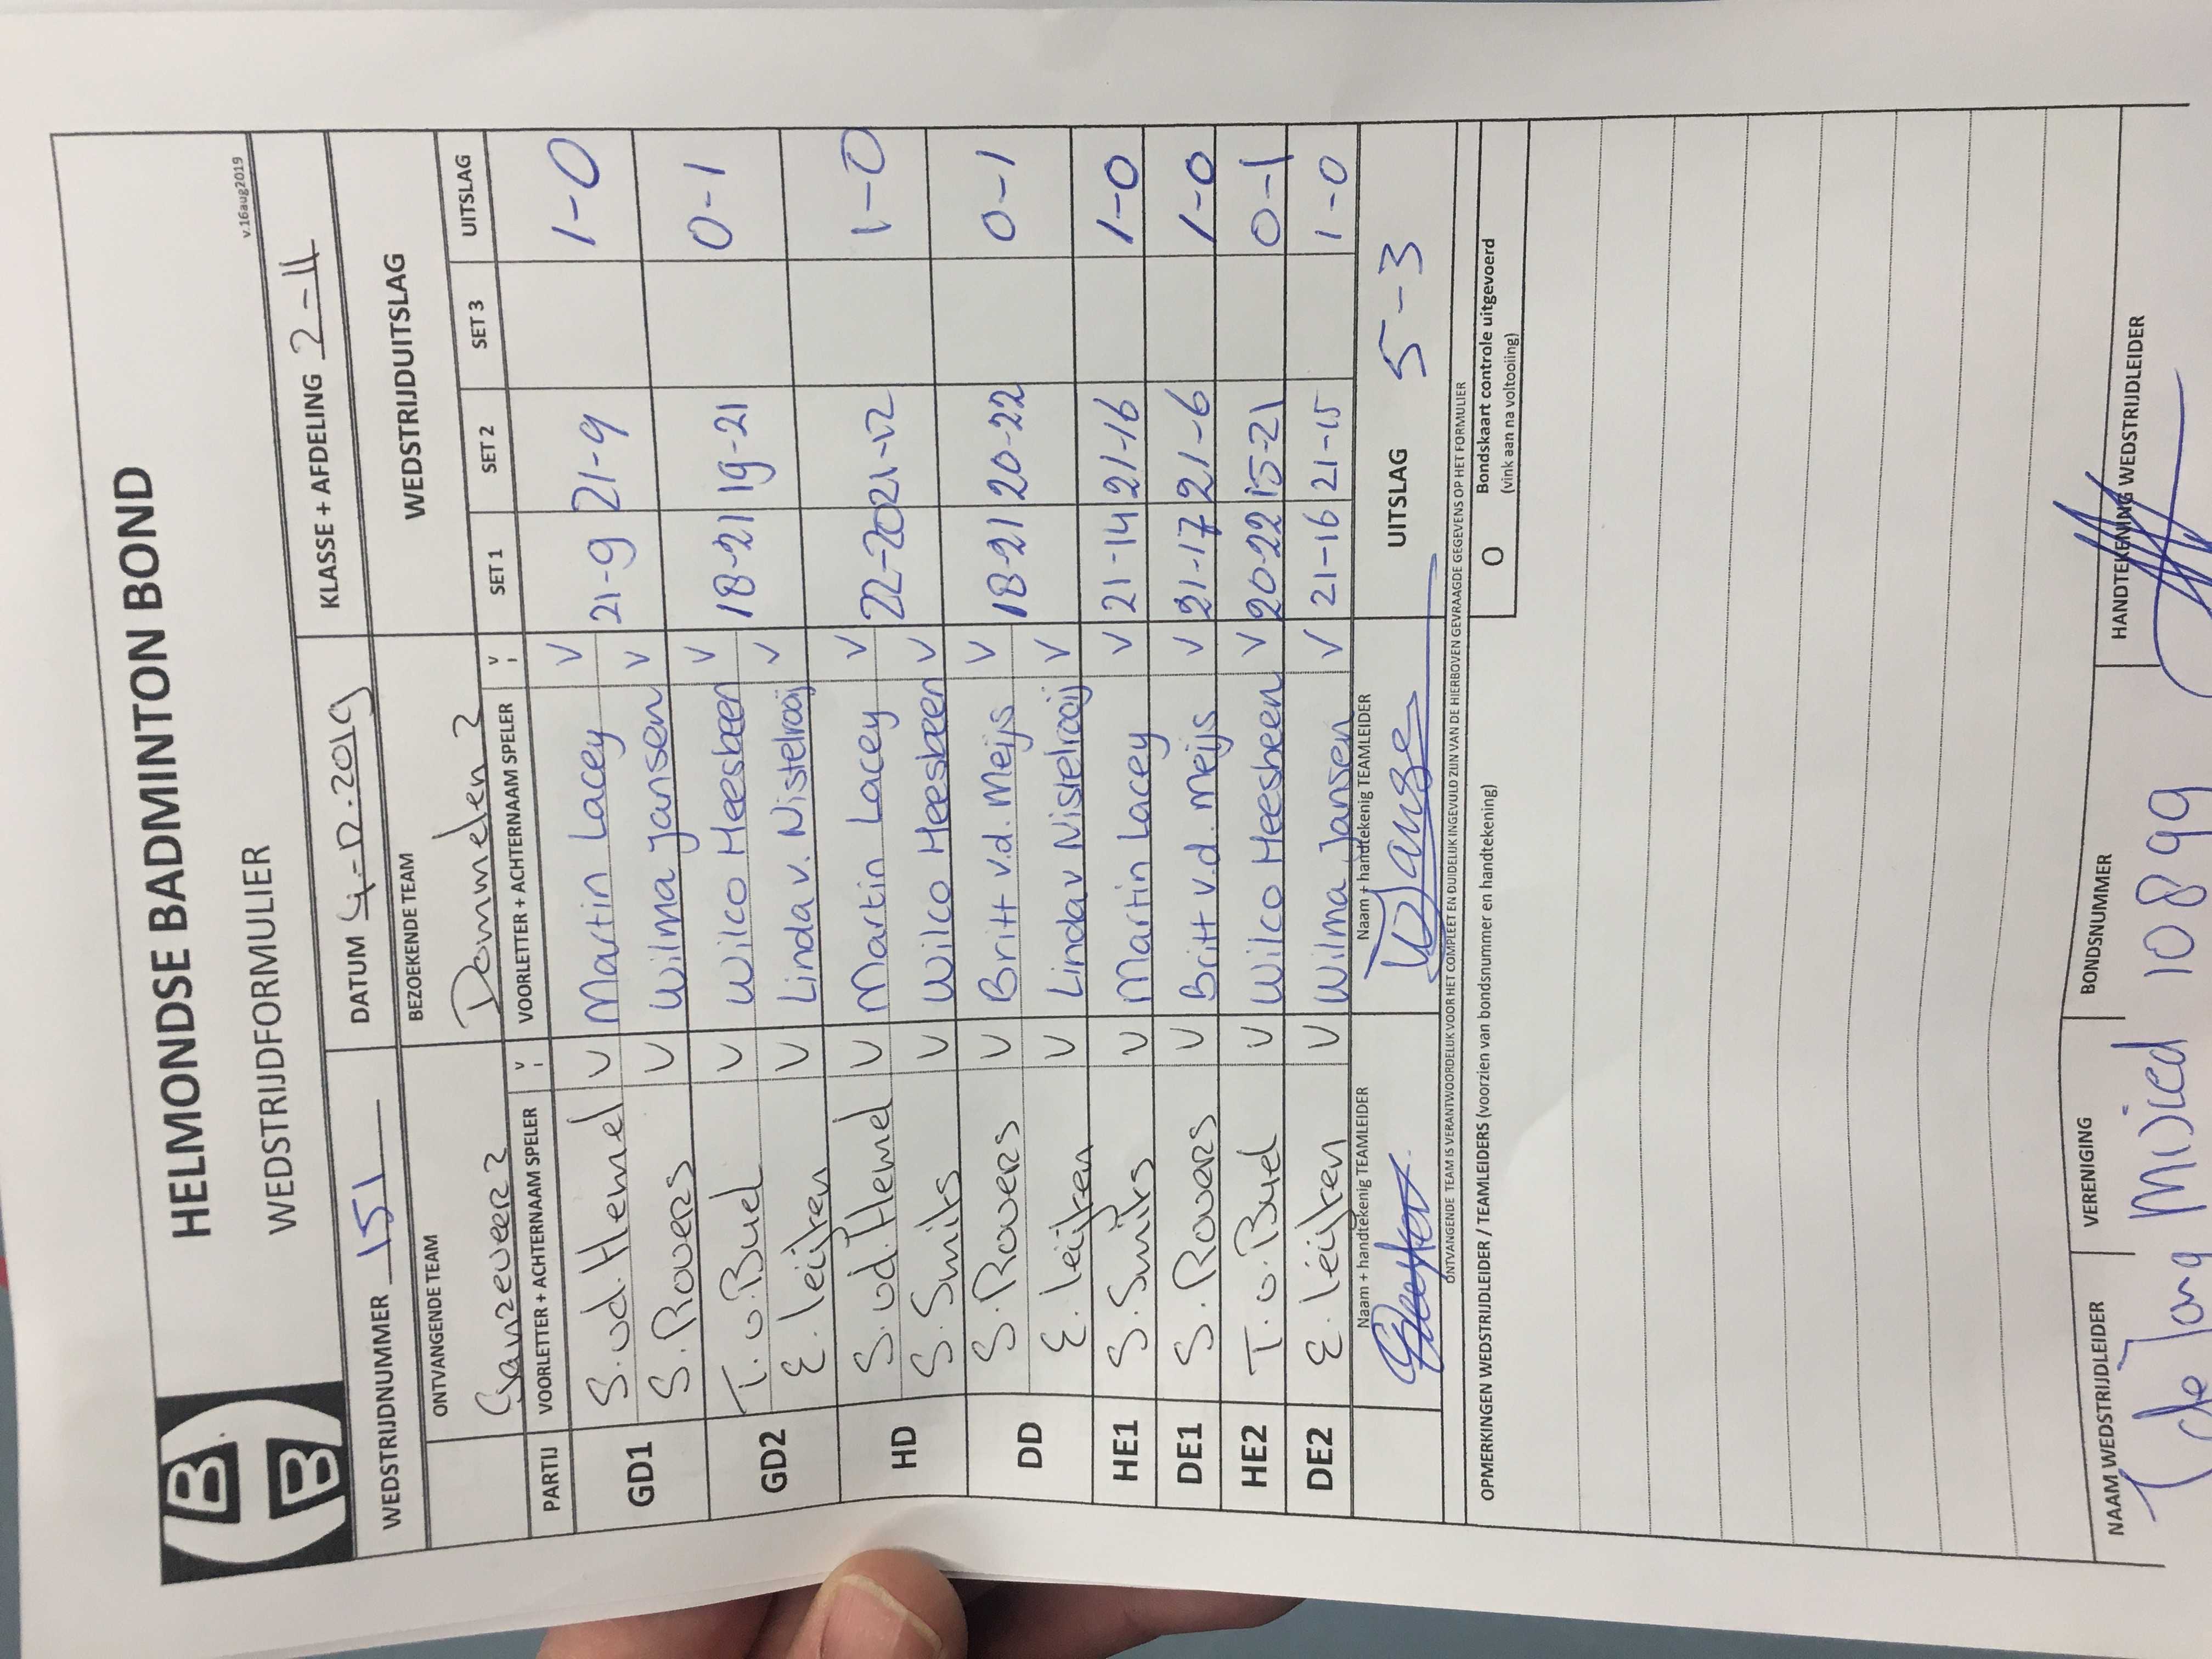 HELMONDSE BADMINTON BOND
WEDSTRIJDFORMULIER
v.16aug2019
WEDSTRIJDNUMMER 151 DATUM 4-12-2019 KLASSE + AFDELING 2-11
ONTVANGENDE TEAM BEZOEKENDE TEAM WEDSTRIJDUITSLAG
Ganzeveer 2 Dommelen 2
PARTIJ VOORLETTER + ACHTERNAAM SPELER V VOORLETTER + ACHTERNAAM SPELER V SET 1 SET 2 SET 3 UITSLAG
GD1 S. vd. Hemel V Martin Lacey V 21-9 21-9 1-0
S. Rovers V Wilma Jansen V
GD2 T. v. Buel V Wilco Heesbeen V 18-21 19-21 0-1
E. Leijten V Linda v. Nistelrooij V
HD S. vd. Hemel V Martin Lacey V 22-20 21-12 1-0
S. Smits V Wilco Heesbeen V
DD S. Rovers V Britt v.d. Meijs V 18-21 20-22 0-1
E. Leijten V Linda v Nistelrooij V
HE1 S. Smits V Martin Lacey V 21-14 21-16 1-0
DE1 S. Rovers V Britt v.d. Meijs V 21-17 21-6 1-0
HE2 T. v. Buel V Wilco Heesbeen V 20-22 15-21 0-1
DE2 E. Leijten V Wilma Jansen V 21-16 21-15 1-0
Naam + handtekenig TEAMLEIDER Naam + handtekenig TEAMLEIDER UITSLAG 5-3
ONTVANGENDE TEAM IS VERANTWOORDELIJK VOOR HET COMPLEET EN DUIDELIJK INGEVULD ZIJN VAN DE HIERBOVEN GEVRAAGDE GEGEVENS OP HET FORMULIER
OPMERKINGEN WEDSTRIJDLEIDER / TEAMLEIDERS (voorzien van bondsnummer en handtekening) O Bondskaart controle uitgevoerd
(vink aan na voltooiing)
NAAM WEDSTRIJDLEIDER VERENIGING BONDSNUMMER HANDTEKENING WEDSTRIJDLEIDER
de Jong 10899